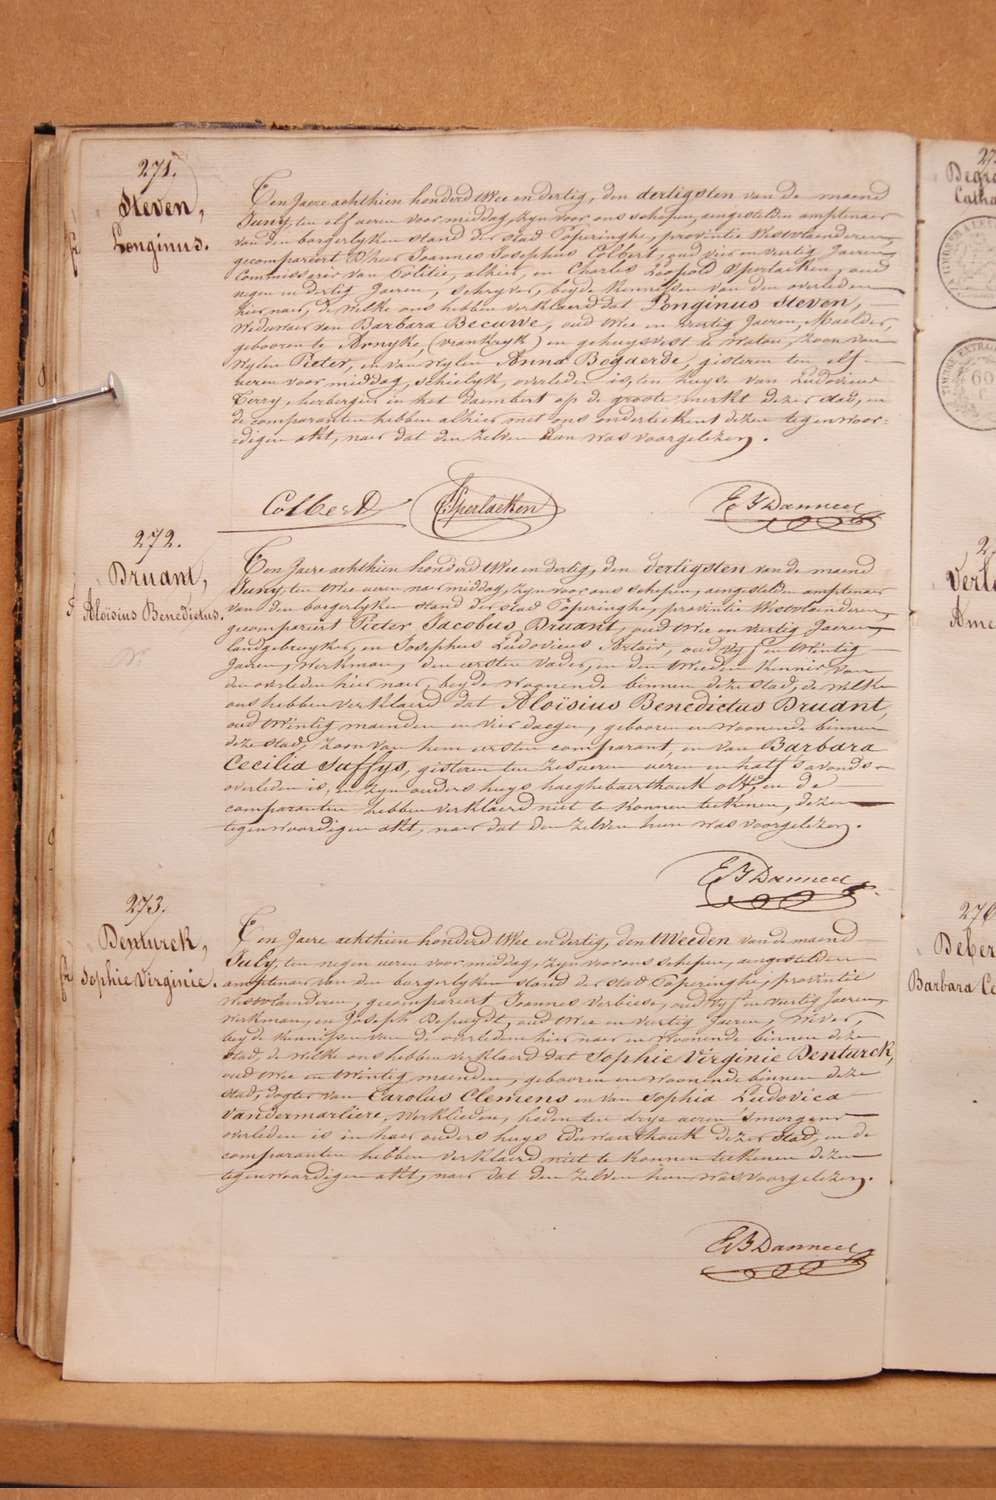 271.
Steven,
Longinus.
Ten Jaere achthien honderd twee en dertig, den dertigsten van de maend
Juny, ten elf ueren voormiddag, zyn voor ons schepen, aengestelden amptenaer
van den borgerlyken stand der stad Poperinghe, provintie Westvlaenderen,
gecompareert d'heer Joannes Josephus Colbert, oud vier en veertig Jaeren,
Commissaris van Politie, alhier, en Charles Leopold Sperlaeken, oud
negen en dertig Jaeren, schryver, beyde kennissen van den overleden
hier naer, de welke ons hebben verklaerd dat Longinus Steven,
Weduwaer van Barbara Becuwe, oud twee en veertig Jaeren, Maelder,
gebooren te Arnyke, (vrankryk) en gehuysvest te Watou, zoon van
wylen Pieter, en van wylen Anna Bogaerde, gisteren ten elf
ueren voormiddag, schielyk, overleden is, ten huyze van Ludovicus
Torry, herbergier in het daembert op de groote merkt dezer stad, en
de comparanten hebben alhier met ons onderteekent dezen tegenwoor-
digen akt, naer dat den zelven hun was voorgelezen.
Colbert Sperlaeken E B Danneel
272.
Druant,
Aloïsius Benedictus.
Ten Jaere achthien honderd twee en dertig, den dertigsten van de maend
Juny, ten twee ueren naermiddag, zyn voor ons schepen, aengestelden amptenaer
van den borgerlyken stand der stad Poperinghe, provintie Westvlaenderen,
gecompareert Pieter Jacobus Druant, oud twee en veertig Jaeren,
landgebruyker, en Josephus Ludovicus oud vyf en twintig
Jaeren, werkman, den eersten vader, en den tweeden kennis van
den overleden hier naer, beyde woonende binnen deze stad, de welke
ons hebben verklaerd dat Aloïsius Benedictus Druant,
oud twintig maenden en vier daegen, gebooren en woonende binnen
deze stad, zoon van hem eersten comparant, en van Barbara
Cecilia Saffys, gisteren ten zes ueren en half s'avonds
overleden is, in zyn ouders huys haeghebaerthouk en de
comparanten hebben verklaerd niet te konnen teekenen, dezen
tegenwoordigen akt, naer dat den zelven hun was voorgelezen.
E B Danneel
273.
Denturck,
Sophie Virginie.
Ten Jaere achthien honderd twee en dertig, den tweeden van de maend
July, ten negen ueren voor middag, zyn voor ons schepen, aengestelden
amptenaer van den borgerlyken stand der stad Poperinghe, provintie
Westvlaenderen, gecompareert Joannes Verbiese, oud vyf en veertig Jaeren,
werkman, en Joseph Depuydt, oud twee en veertig Jaeren, wever,
beyde kennissen van de overledene hier naer en woonende binnen deze
stad, de welke ons hebben verklaerd dat Sophie Virginie Denturck,
oud twee en twintig maenden, gebooren en woonende binnen deze
stad, dogter van Carolus Clemens en van Sophia Ludovica
Vandermarliere, werklieden, heden ten drye ueren 's morgens
overleden is in haer ouders huys Eduwaerthouk dezer stad, en de
comparanten hebben verklaerd niet te konnen teekenen dezen
tegenwoordigen akt, naer dat den zelven hun was voorgelezen.
E B Danneel